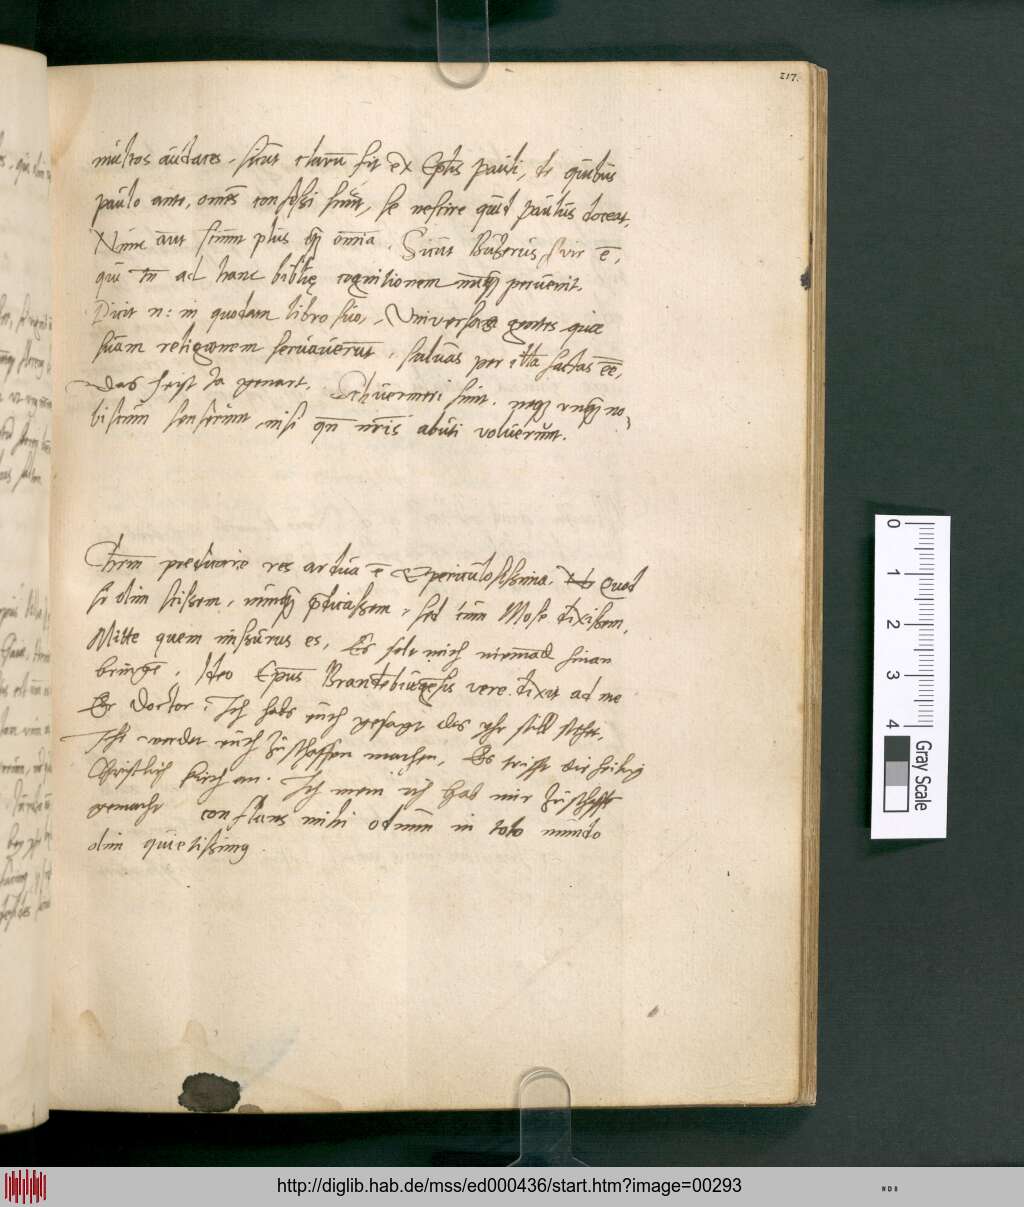 217.
multos audaces, sicut clarum sit ex Eplis Pauli, de quibus
paulo ante, omēs confessi sunt, se nescire quid Paulus doceat,
Nunc aut sciunt plus qz omnia. Sicut Bucerus, vir ē,
qui tn ad hanc bibliē cognitionem nunqz peruenit.
Dicit n: in quodam libro suo, Universas gentes, quae
suam religionem seruauerunt, saluas per illa factas eē,
Das heist ja genart. Schuermeri sunt. neqz unqz no=
biscum senserunt, nisi qn nris abuti voluerunt.
Christum predicare res ardua ē et periculosissima. Quod
si olim scissem, nunqz pdicassem, sed cum Mose dixissem,
Mitte quem missurus es, Er solt mich niemad hinan
bringē. Ideo Epus Brandēburgēsis vere dixit ad me
Er doctor, Ich habs euch gesagt das yhr still stehet,
Ihr werdet euch zuschaffen machen, Es trifft die heilig
Christlich kirch an. Ich mein ich hab mir zuschaffē
gemacht conflans mihi odium in toto mundo
olim quietissimus.
0
1
2
3
4
Gray Scale
http://diglib.hab.de/mss/ed000436/start.htm?image=00293